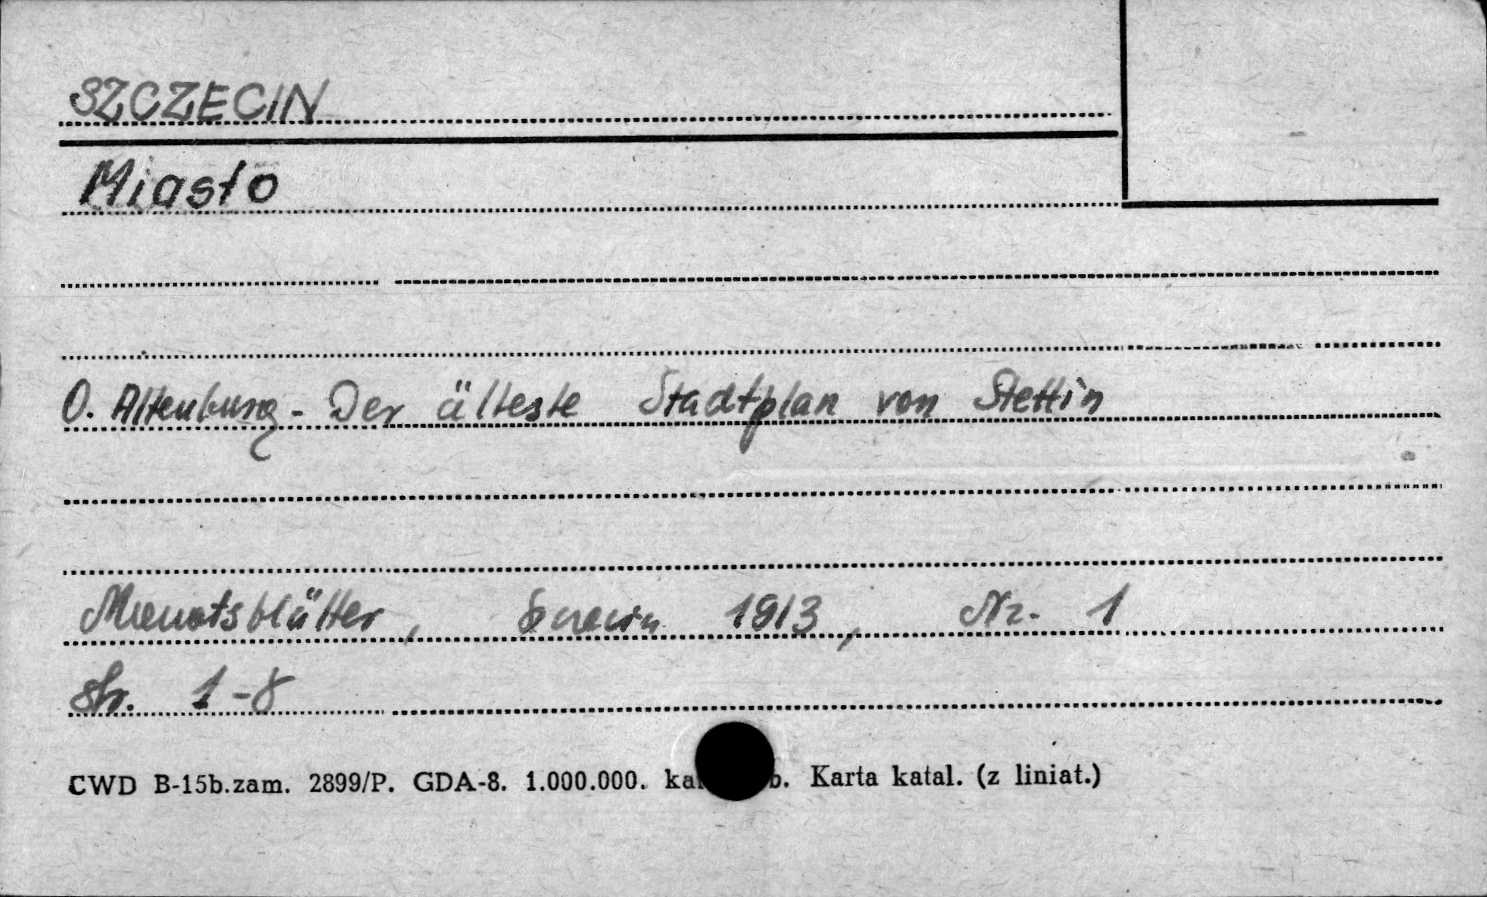 SZCZECIN
Miasto
O. Altenburg - Der älteste Stadtplan von Stettin
Monatsblätter, 1913, Nr. 1
str. 1-8
CWD B-15b.zam. 2899/P. GDA-8. 1.000.000. Karta katal. (z liniat.)